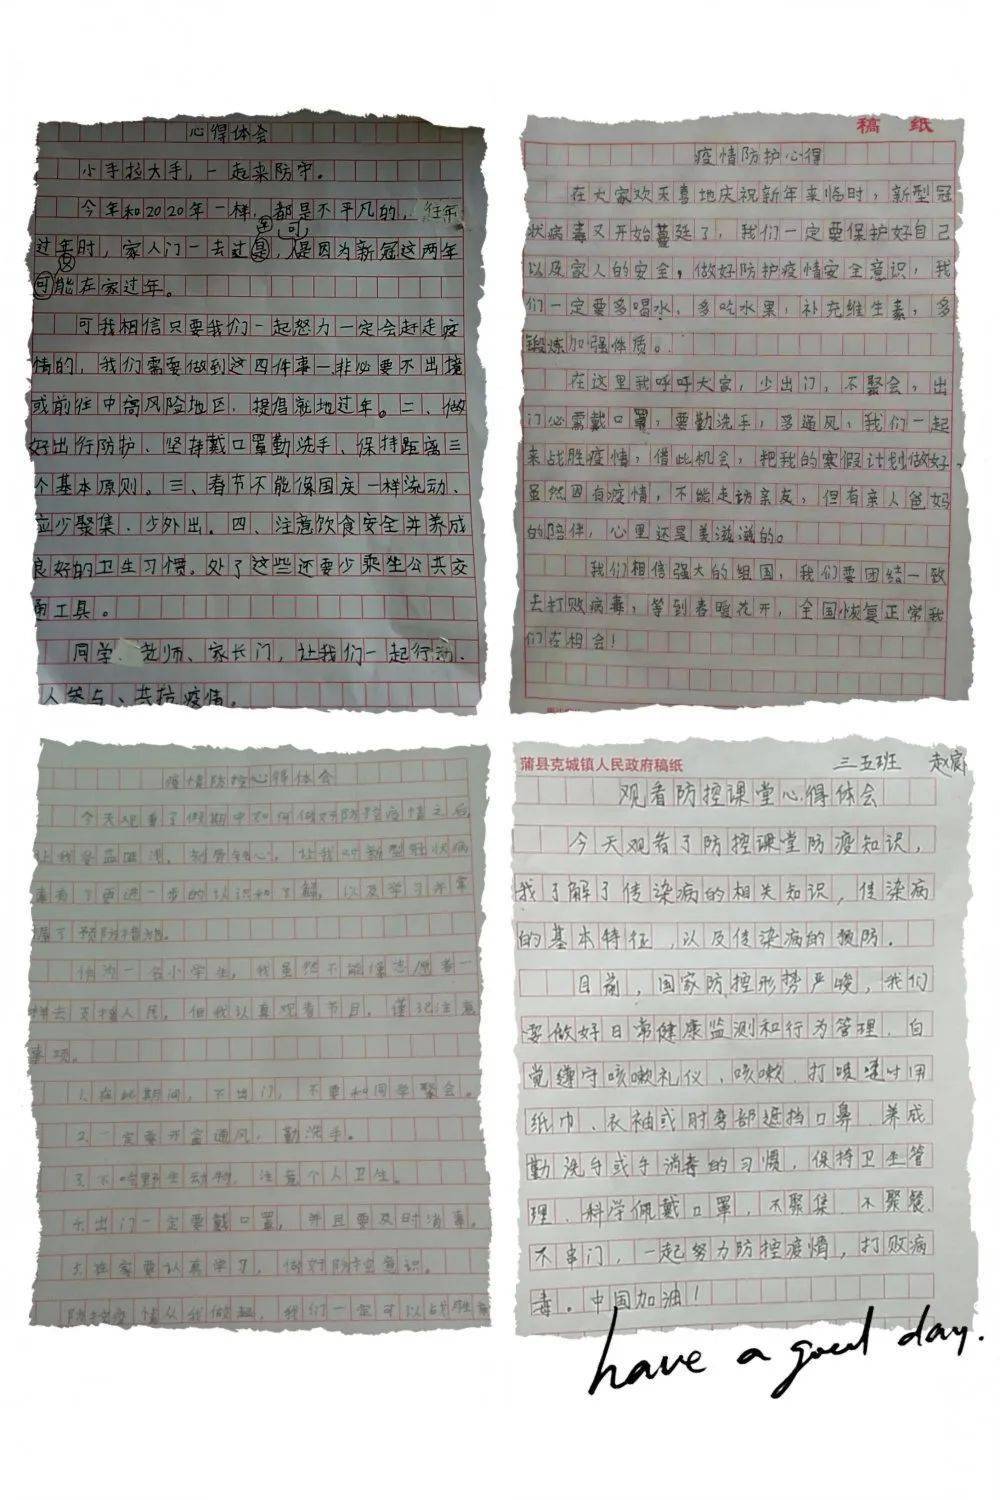 心得体会
小手拉大手，一起来防守。
今年和2020年一样，都是不平凡的，往年
过年时，家人门一去过是，但是因为新冠这两年
可能在家过年。
可我相信只要我们一起怒力一定会赶走疫
情的，我们需要做到这四件事一、非必要不出境
或前往中高风险地区，提倡就地过年。二、做
好出行防护、坚持戴口罩勤洗手、保持距离三
个基本原则。三、春节不能像国庆一样流动、
应少聚集、少外出。四、注意饮食安全并养成
良好的卫生习惯。处了这些还要少乘坐公共交
通工具。
同学、老师、家长门，让我们一起行动、
人参与、共抗疫情。
稿 纸
疫情防护心得
在大家欢天喜地庆祝新年来临时，新型冠
状病毒又开始蔓延了，我们一定要保护好自己
以及家人的安全，做好防护疫情安全意识，我
们一定要多喝水，多吃水果，补充维生素，多
锻炼加强体质。
在这里我呼呼大家，少出门，不聚会，出
门必需戴口罩，要勤洗手，多通风，我们一起
来战胜疫情，借此机会，把我的寒假计划做好，
虽然因有疫情，不能走访亲友，但有亲人爸妈
的陪伴，心里还是美滋滋的。
我们相信强大的祖国，我们要团结一致
去打败病毒，等到春暖花开，全国恢复正常我
们在相会！
疫情防控心得体会
今天观看了假期中如何做好防控疫情之后，
让我受益匪浅，刻骨铭心，让我对新型冠状病
毒有了更进一步的认识和了解，以及学习并掌
握了预防措施。
作为一名小学生，我虽然不能像志愿者一
样去支援人民，但我认真观看节目，谨记注意
事项。
1.在此期间，不出门，不要和同学聚会。
2.一定要开窗通风，勤洗手。
3.不吃野生动物，注意个人卫生。
4.出门一定要戴口罩，并且要及时消毒。
5.在家要认真学习，做好防控意识。
防控疫情从我做起，我们一定可以战胜
蒲县克城镇人民政府稿纸
三五班 赵宸
观看防控课堂心得体会
今天观看了防控课堂防疫知识，
我了解了传染病的相关知识，传染病
的基本特征，以及传染病的预防．
目前，国家防控形势严峻，我们
要做好日常健康监测和行为管理．自
觉遵守咳嗽礼仪、咳嗽、打喷嚏时用
纸巾、衣袖或肘弯部遮挡口鼻．养成
勤洗手或手消毒的习惯．保持卫生管
理．科学佩戴口罩，不聚集．不聚餐．
不串门，一起努力防控疫情，打败病
毒。中国加油！
have a good day.